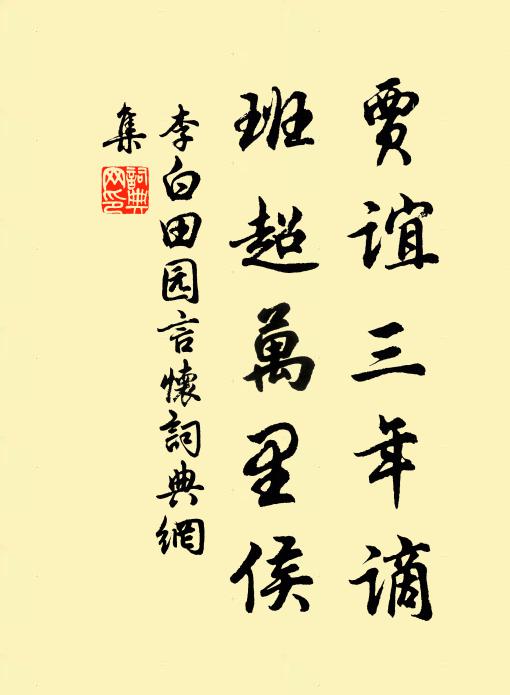 賈誼三年謫
班超萬里侯
李白田园言懷詞典網
集
詞典网印